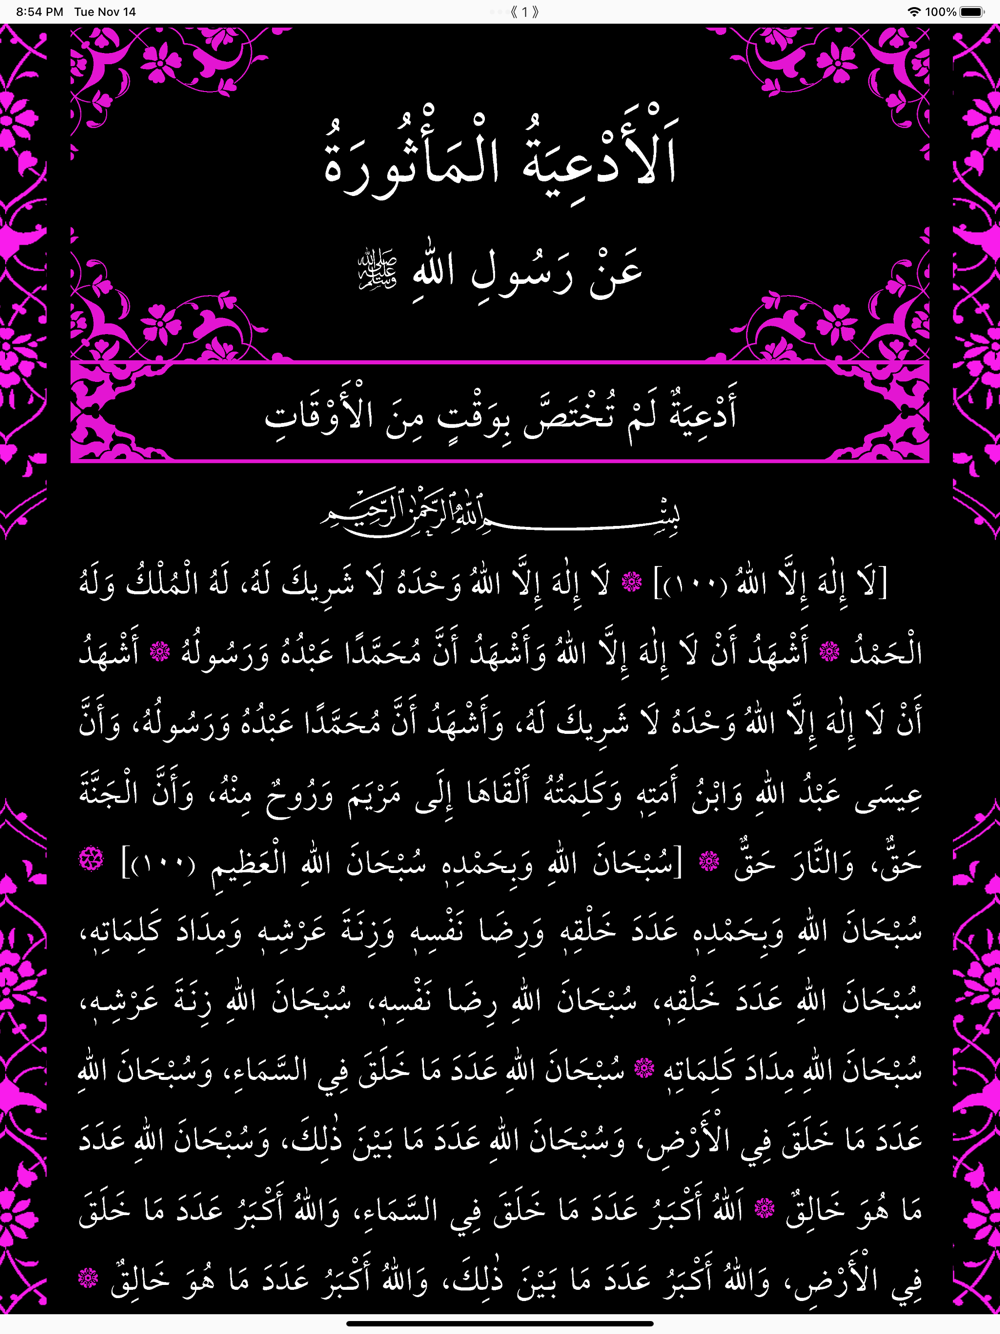 8:54 PM Tue Nov 14 《 1 》 100%
اَلْأَدْعِيَةُ الْمَأْثُورَةُ
عَنْ رَسُولِ اللهِ ﷺ
أَدْعِيَةٌ لَمْ تُخْتَصَّ بِوَقْتٍ مِنَ الْأَوْقَاتِ
بِسْمِ اللهِ الرَّحْمٰنِ الرَّحِيمِ
[لَا إِلٰهَ إِلَّا اللهُ (١٠٠)] ۞ لَا إِلٰهَ إِلَّا اللهُ وَحْدَهُ لَا شَرِيكَ لَهُ، لَهُ الْمُلْكُ وَلَهُ
الْحَمْدُ ۞ أَشْهَدُ أَنْ لَا إِلٰهَ إِلَّا اللهُ وَأَشْهَدُ أَنَّ مُحَمَّدًا عَبْدُهُ وَرَسُولُهُ ۞ أَشْهَدُ
أَنْ لَا إِلٰهَ إِلَّا اللهُ وَحْدَهُ لَا شَرِيكَ لَهُ، وَأَشْهَدُ أَنَّ مُحَمَّدًا عَبْدُهُ وَرَسُولُهُ، وَأَنَّ
عِيسَى عَبْدُ اللهِ وَابْنُ أَمَتِهِ وَكَلِمَتُهُ أَلْقَاهَا إِلَى مَرْيَمَ وَرُوحٌ مِنْهُ، وَأَنَّ الْجَنَّةَ
حَقٌّ، وَالنَّارَ حَقٌّ ۞ [سُبْحَانَ اللهِ وَبِحَمْدِهِ سُبْحَانَ اللهِ الْعَظِيمِ (١٠٠)] ۞
سُبْحَانَ اللهِ وَبِحَمْدِهِ عَدَدَ خَلْقِهِ وَرِضَا نَفْسِهِ وَزِنَةَ عَرْشِهِ وَمِدَادَ كَلِمَاتِهِ،
سُبْحَانَ اللهِ عَدَدَ خَلْقِهِ، سُبْحَانَ اللهِ رِضَا نَفْسِهِ، سُبْحَانَ اللهِ زِنَةَ عَرْشِهِ،
سُبْحَانَ اللهِ مِدَادَ كَلِمَاتِهِ ۞ سُبْحَانَ اللهِ عَدَدَ مَا خَلَقَ فِي السَّمَاءِ، وَسُبْحَانَ اللهِ
عَدَدَ مَا خَلَقَ فِي الْأَرْضِ، وَسُبْحَانَ اللهِ عَدَدَ مَا بَيْنَ ذٰلِكَ، وَسُبْحَانَ اللهِ عَدَدَ
مَا هُوَ خَالِقٌ ۞ اَللهُ أَكْبَرُ عَدَدَ مَا خَلَقَ فِي السَّمَاءِ، وَاللهُ أَكْبَرُ عَدَدَ مَا خَلَقَ
فِي الْأَرْضِ، وَاللهُ أَكْبَرُ عَدَدَ مَا بَيْنَ ذٰلِكَ، وَاللهُ أَكْبَرُ عَدَدَ مَا هُوَ خَالِقٌ ۞